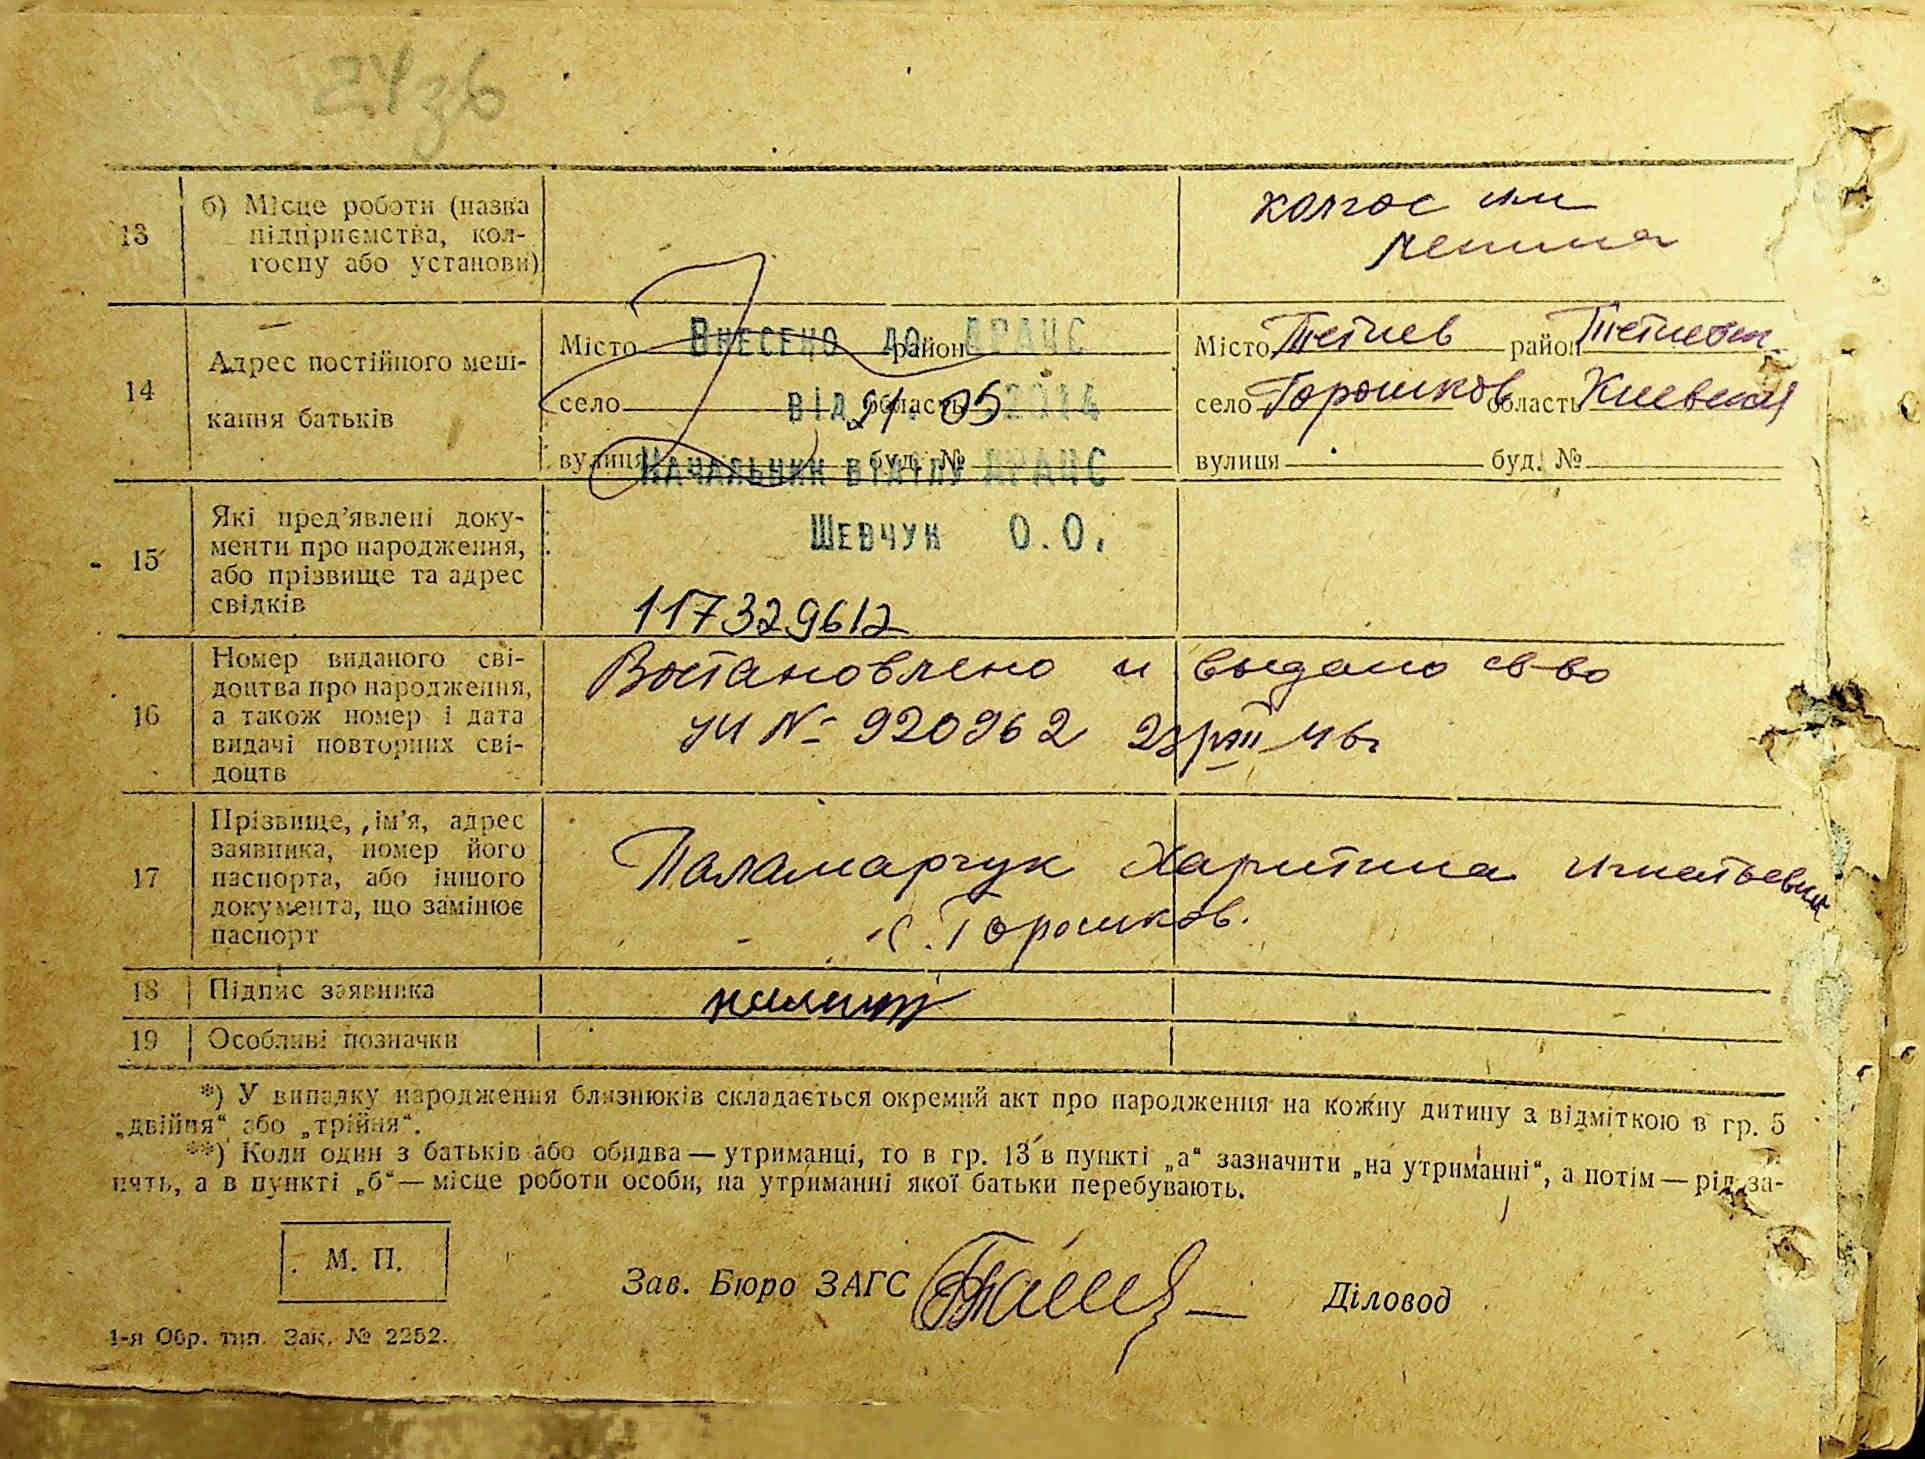 24зб
13 б) Місце роботи (назва підприємства, колгоспу або установи)
колгос им
Ленина
14 Адрес постійного мешкання батьків
Місто район
село область
вулиця буд. №
Внесено до ДРАЦС
від 21 05 2014
Начальник відділу ДРАЦС
Шевчук О.О.
Місто Тетиев район Тетиевск
село Горошков область Киевская
вулиця буд. №
15 Які пред'явлені документи про народження, або прізвище та адрес свідків
117329612
16 Номер виданого свідоцтва про народження, а також номер і дата видачі повторних свідоцтв
Востановлено и выдано св-во
№ 920962 46г
17 Прізвище, ім'я, адрес заявника, номер його паспорта, або іншого документа, що замінює паспорт
Паламарчук Харитина Игнатьевна
с. Горошков.
18 Підпис заявника
19 Особливі позначки
*) У випадку народження близнюків складається окремий акт про народження на кожну дитину з відміткою в гр. 5
„двійня“ або „трійня“.
**) Коли один з батьків або обидва — утриманці, то в гр. 13 в пункті „а“ зазначити „на утриманні“, а потім — рід за-
нять, а в пункті „б“ — місце роботи особи, на утриманні якої батьки перебувають.
М. П.
Зав. Бюро ЗАГС Діловод
1-я Обр. тип. Зак. № 2252.